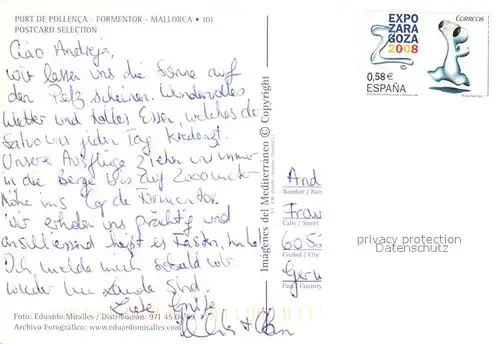 PORT DE POLLENÇA - FORMENTOR - MALLORCA • 101
POSTCARD SELECTION
Ciao Andreja,
wir lassen uns die Sonne auf
den Pelz scheinen. Wundervolles
Wetter und tolles Essen, welches der
Salvo uns jeden Tag kredenzt.
Unsere Ausflüge ziehen wir immer
in die Berge bis auf 2000 meter
Höhe uns Cap de Formentor.
Wir erholen uns prächtig und
anschliessend heißt es Fasten,
Ich melde mich sobald wir
wieder im Lande sind.
Liebe Grüße
Foto: Eduardo Miralles / Distribución: 971 45
Archivo Fotográfico: www.eduardomiralles.com
Imágenes del Mediterráneo © Copyright
EXPO
ZARA
GOZA
2008
CORREOS
0,58€
ESPAÑA
And
Number / Nam
Frau
Calle / Street
605
Ciudad / City
Germ
País / Country
privacy protection
Datenschutz